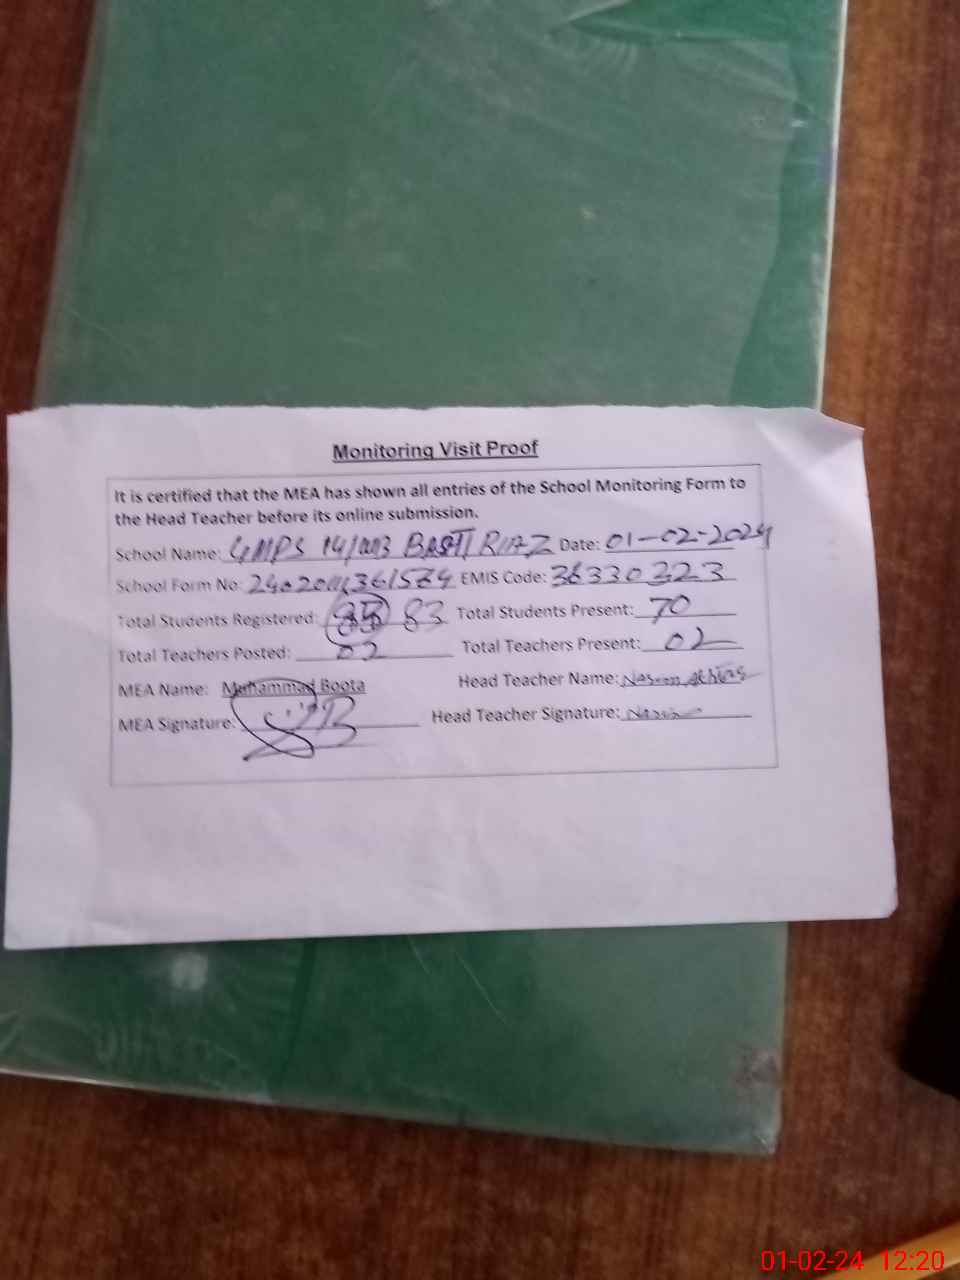 Monitoring Visit Proof
It is certified that the MEA has shown all entries of the School Monitoring Form to
the Head Teacher before its online submission.
School Name: GMPS 14/ BASTI RIAZ Date: 01-02-2024
School Form No: EMIS Code: 36330323
Total Students Registered: 83 Total Students Present: 70
Total Teachers Posted: 02 Total Teachers Present: 02
MEA Name: Muhammad Boota Head Teacher Name: Akhtar
MEA Signature: Head Teacher Signature:
01-02-24 12:20